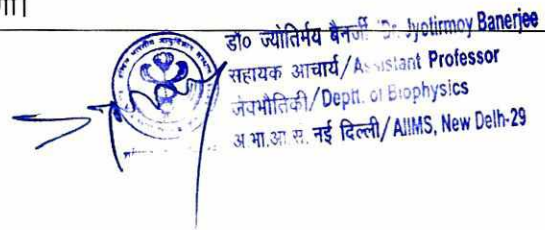 डॉ० ज्योतिर्मय बैनर्जी Dr. Jyotirmoy Banerjee
सहायक आचार्य/Assistant Professor
जैवभौतिकी/Deptt. of Biophysics
अ.भा.आ.सं. नई दिल्ली/AIIMS, New Delh-29